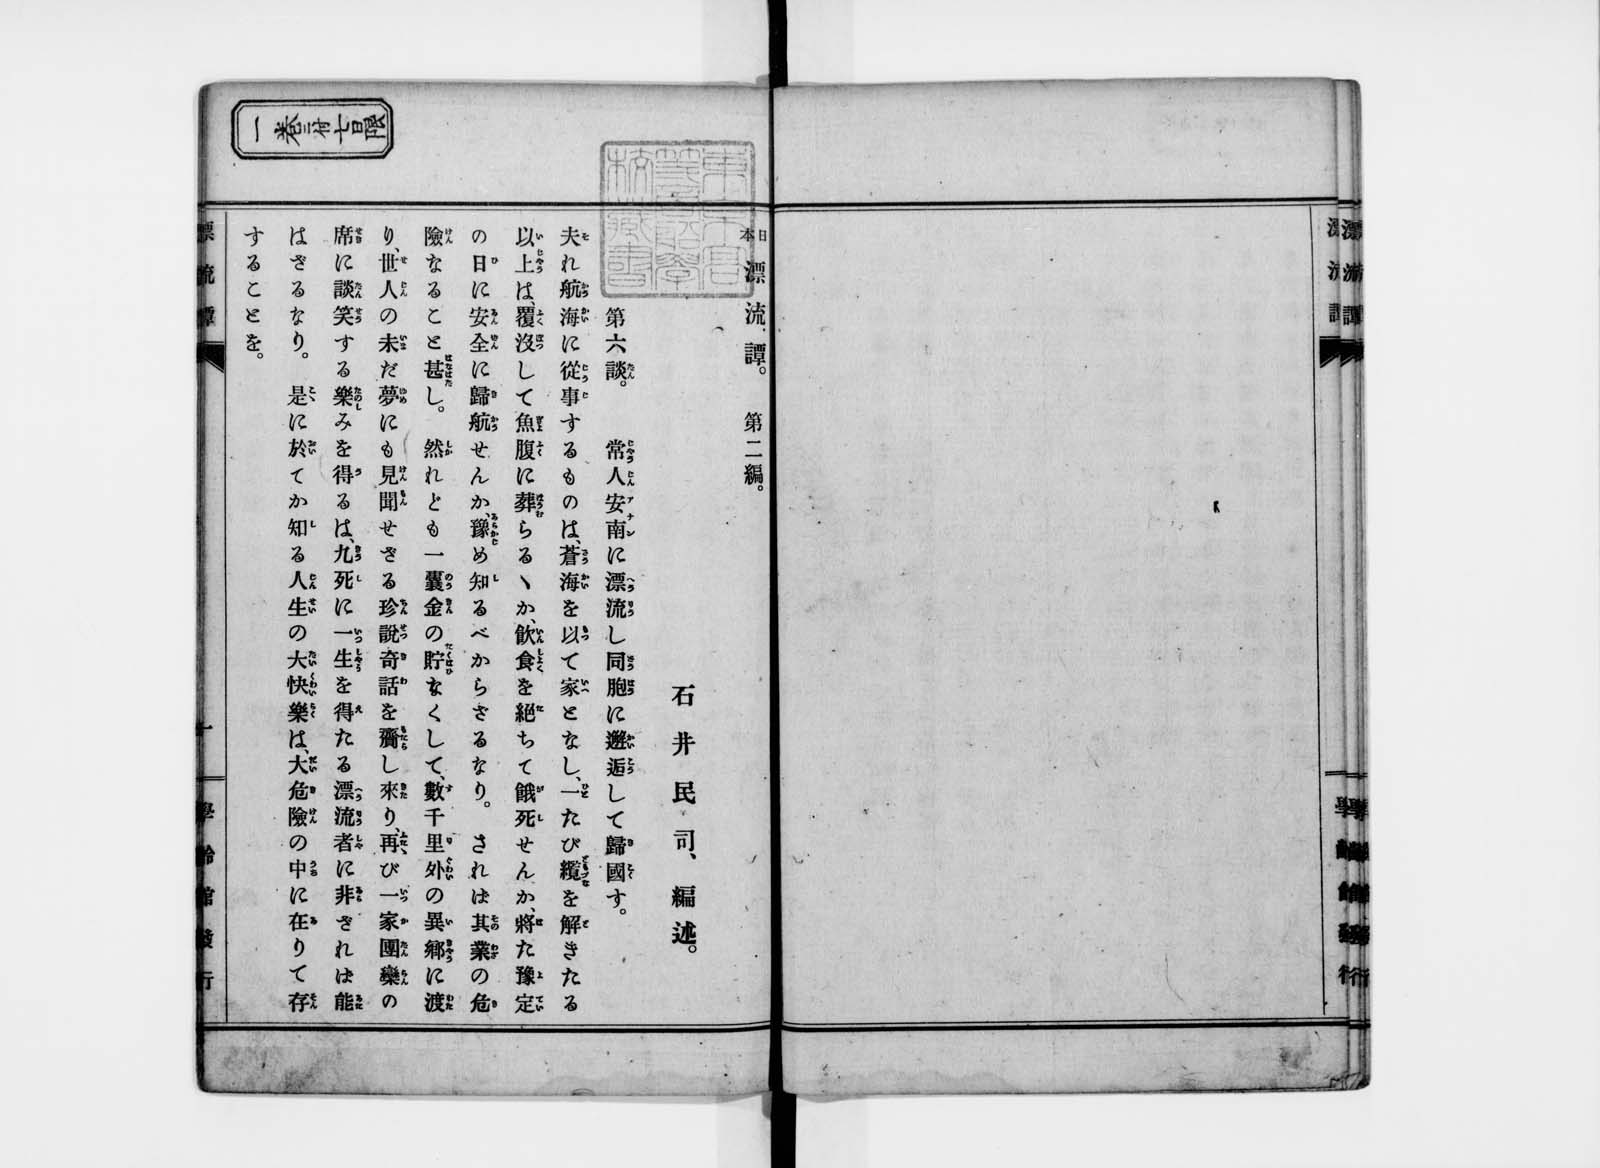 日本漂流譚。　第二編。
石井民司、編述。
第六談。　常人安南に漂流し同胞に邂逅して歸國す。
夫れ航海に從事するものは、蒼海を以て家となし、一たび纜を解きたる
以上は、覆沒して魚腹に葬らるヽか、飮食を絕ちて餓死せんか、將た豫定
の日に安全に歸航せんか、豫め知るべからざるなり。されは其業の危
險なること甚し。然れとも一囊金の貯なくして、數千里外の異鄕に渡
り、世人の未だ夢にも見聞せざる珍說奇話を齎し來り、再び一家團欒の
席に談笑する樂みを得るは、九死に一生を得たる漂流者に非ざれは能
はざるなり。是に於てか知る人生の大快樂は、大危險の中に在りて存
することを。
漂流譚
一
學齡館發行
一卷三付七日限
漂流譚
學齡館發行